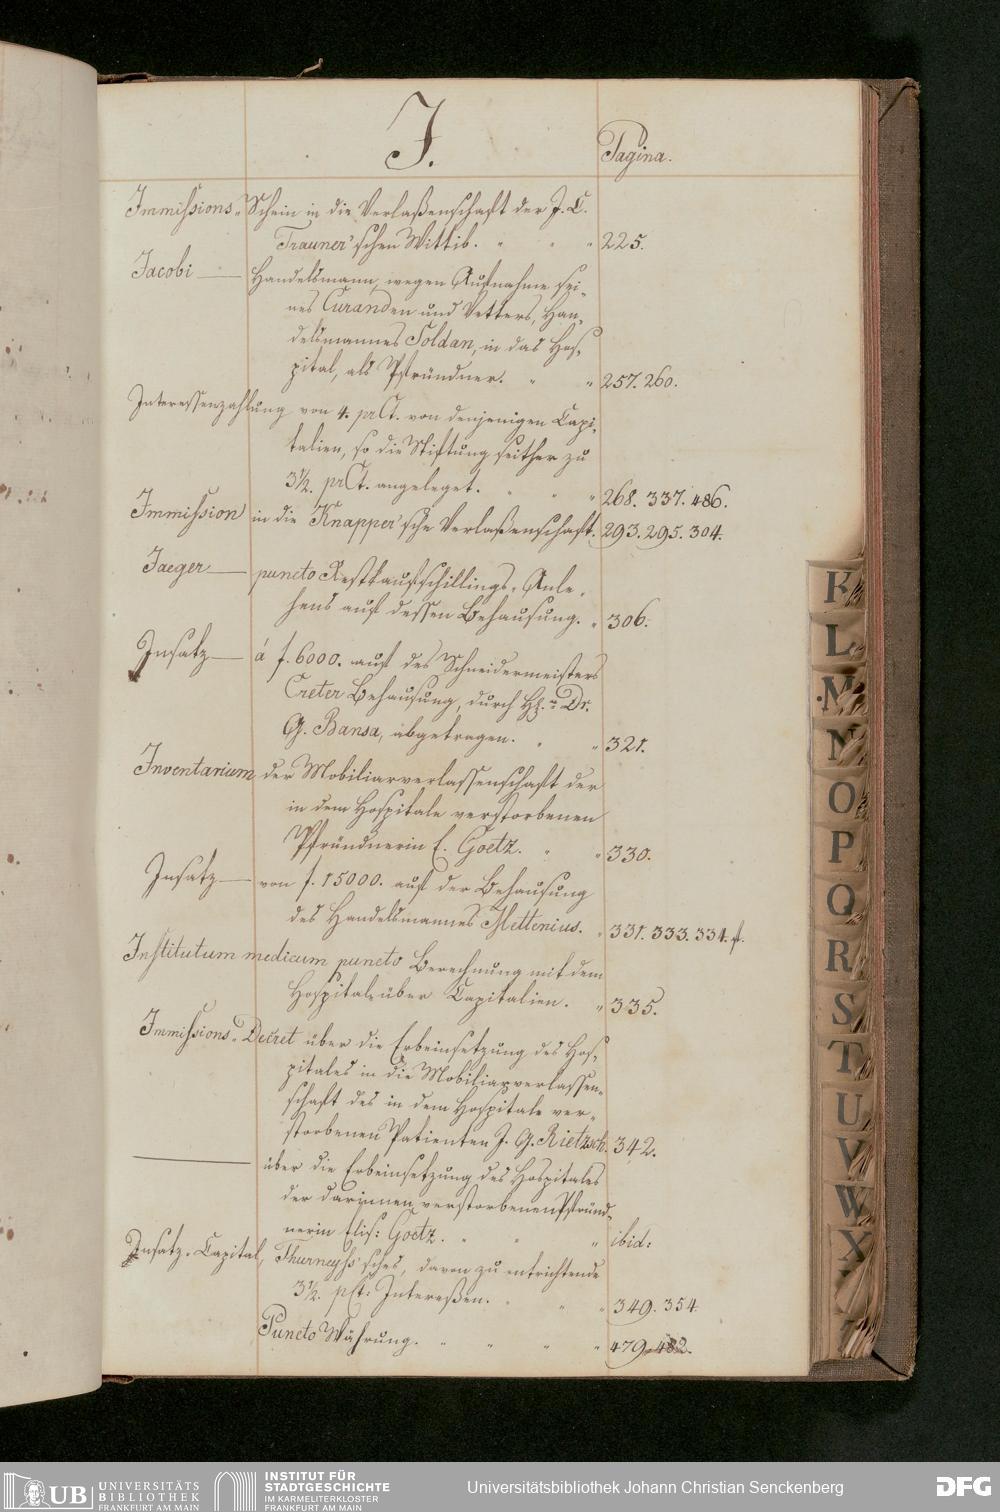 J.
Pagina.
Immissions-Schein in die Verlaßenschaft der J. C.
Trauner'schen Wittib. " " " 225.
Jacobi — Handelsmann, wegen Aufnahme sei-
nes Curanden und Vetters, Han-
delsmannes Soldan, in das Hos-
pital, als Pfründner. " " 257. 260.
Interessenzahlung von 4. prCt. von denjenigen Capi-
talien, so die Stiftung seither zu
3½. prCt. angeleget. " " " 268. 337. 486.
Immission in die Knapper'sche Verlaßenschaft. 293. 295. 304.
Jaeger — puncto Restkaufschillings-Anle-
hens auf dessen Behausung. " 306.
Insatz — á f. 6000. auf des Schneidermeisters
Creter Behausung, durch Hr. Dr.
G. Bansa, abgetragen. " " 321.
Inventarium der Mobiliarverlassenschaft der
in dem Hospitale verstorbenen
Pfründnerin E. Goetz. " " 330.
Insatz — von f. 15000. auf der Behausung
des Handelsmannes Mettenius. " 331. 333. 334. f.
Institutum medicum puncto Berechnung mit dem
Hospitale über Capitalien. " 335.
Immissions-Decret über die Erbeinsetzung des Hos-
pitales in die Mobiliarverlassen-
schaft des in dem Hospitale ver-
storbenen Patienten J. G. Rietzsch. 342.
— über die Erbeinsetzung des Hospitales
der darinnen verstorbenen Pfründ-
nerin Elis: Goetz. " " " ibid:
Insatz-Capital, Thurneyss'sches, davon zu entrichtende
3½. pCt: Interessen. " " " 349. 354.
Puncto Währung. " " " " 479. 482.
K
L
M
N
O
P
Q
R
S
T
U
V
W
X
UB UNIVERSITÄTS
BIBLIOTHEK
FRANKFURT AM MAIN
INSTITUT FÜR
STADTGESCHICHTE
IM KARMELITERKLOSTER
FRANKFURT AM MAIN
Universitätsbibliothek Johann Christian Senckenberg
DFG